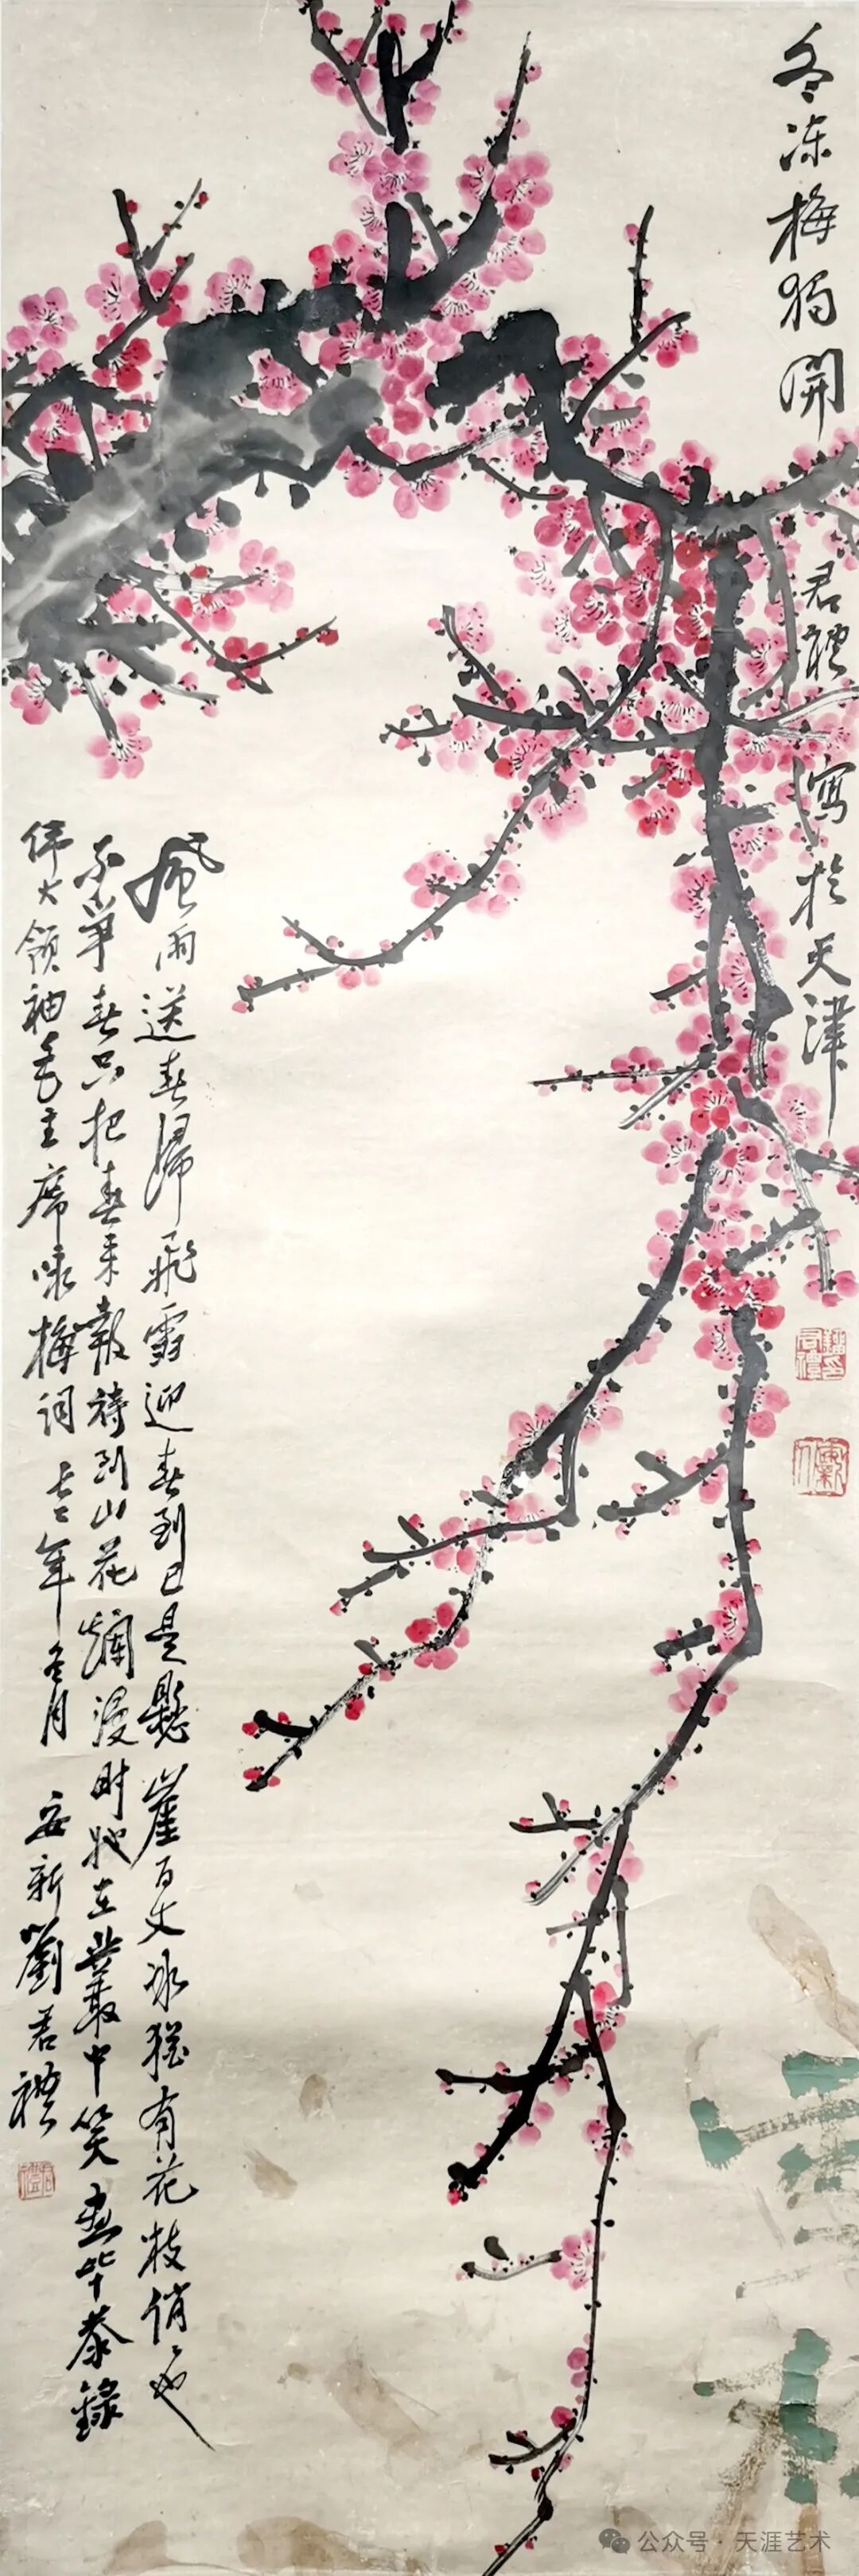 冬冻梅獨開
君禮寫於天津
風雨送春歸飛雪迎春到已是懸崖百丈冰猶有花枝俏々也
不爭春只把春來報待到山花爛漫時她在叢中笑畫畢恭錄
偉大領袖毛主席咏梅詞 七二年冬月 安新劉君禮
公众号·天涯艺术